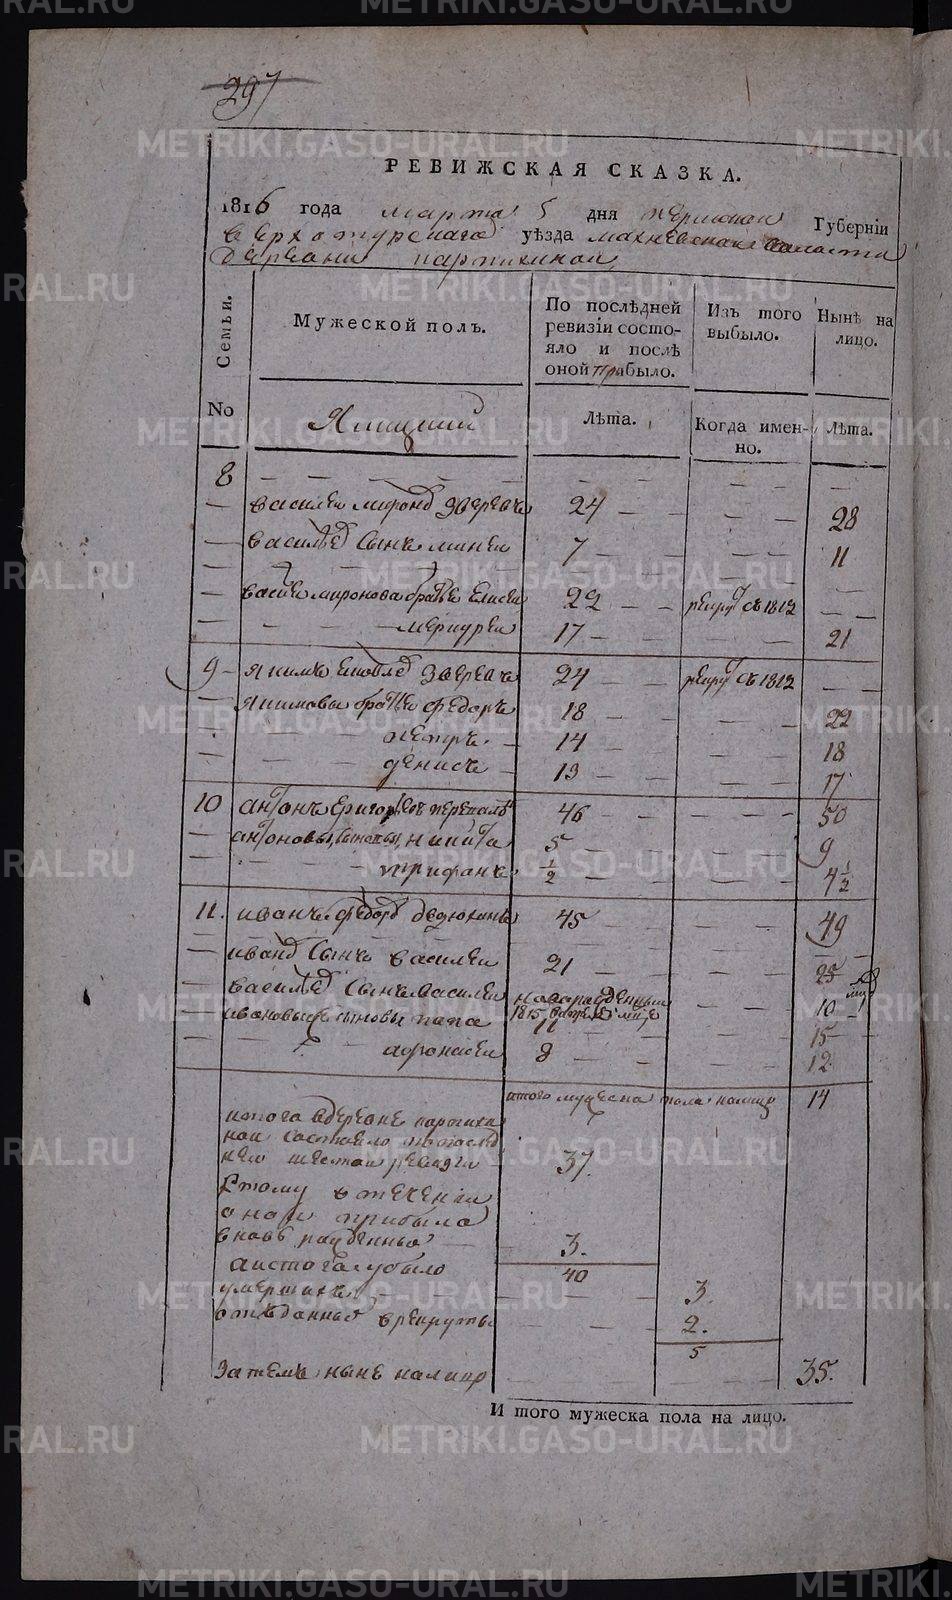 297
РЕВИЖСКАЯ СКАЗКА.
1816 года марта 5 дня пермской Губерніи
верхотурскаго уѣзда махневской валасти
деревни
Семьи.
Мужеской полъ.
По послѣдней ревизіи состояло и послѣ оной прибыло.
Изъ того выбыло.
Нынѣ на лицо.
No
Ямщики
Лѣта.
Когда именно.
Лѣта.
8
василеи миронов зверевъ 24 28
васильев сынъ 7 11
миронова братья елисеи 22 рекрут съ 1812
меркуреи 17 21
9 якимъ яковлев зверевъ 24 рекрут съ 1812
якимовы братья федоръ 18 22
петръ 14 18
денисъ 13 17
10 антонъ григорьевъ 46 50
антоновы сыновья никита 5 9
трифанъ ½ 4½
11. иванъ федоров дедюхинъ 45 49
иванов сынъ василеи 21 25
васильев сынъ василеи новорожденныи 10
1815
ивановы сыновья 11 15
афонасеи 8 12
итого мужеска пола налицо 14
итого в деревне
нои состояло по послед
неи шестои ревизии 37.
к тому в течении
онои прибыло
вновь рожденных 3.
40
а исто го убыло
умершихъ 3.
отъданных в рекруты 2.
5
затемъ нынѣ налицо 35.
И того мужеска пола на лицо.
METRIKI.GASO-URAL.RU